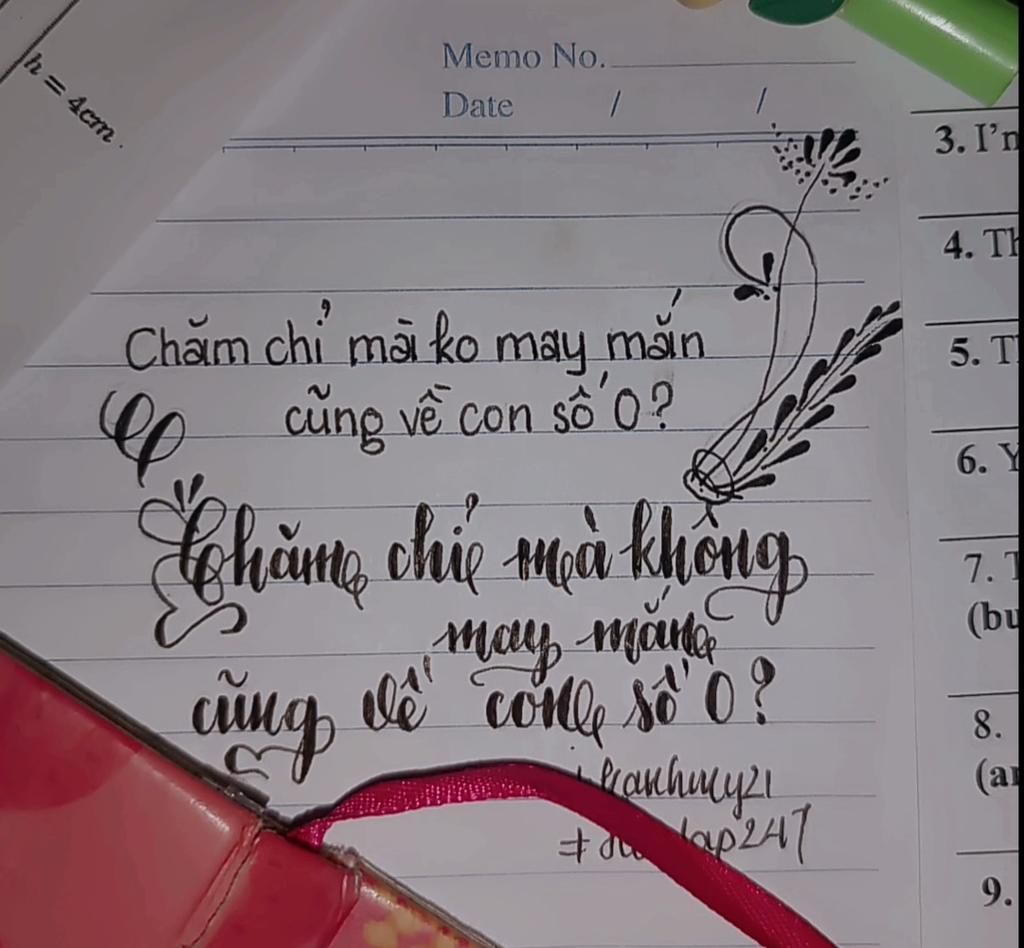 h = 4cm.
Memo No.
Date / /
3. I'm
4. Th
5. T
6. Y
7. T
(bu
8.
(an
9.
Chăm chỉ mà ko may mắn
cũng về con số 0?
Chăm chỉ mà không
may mắn
cũng về con số 0?